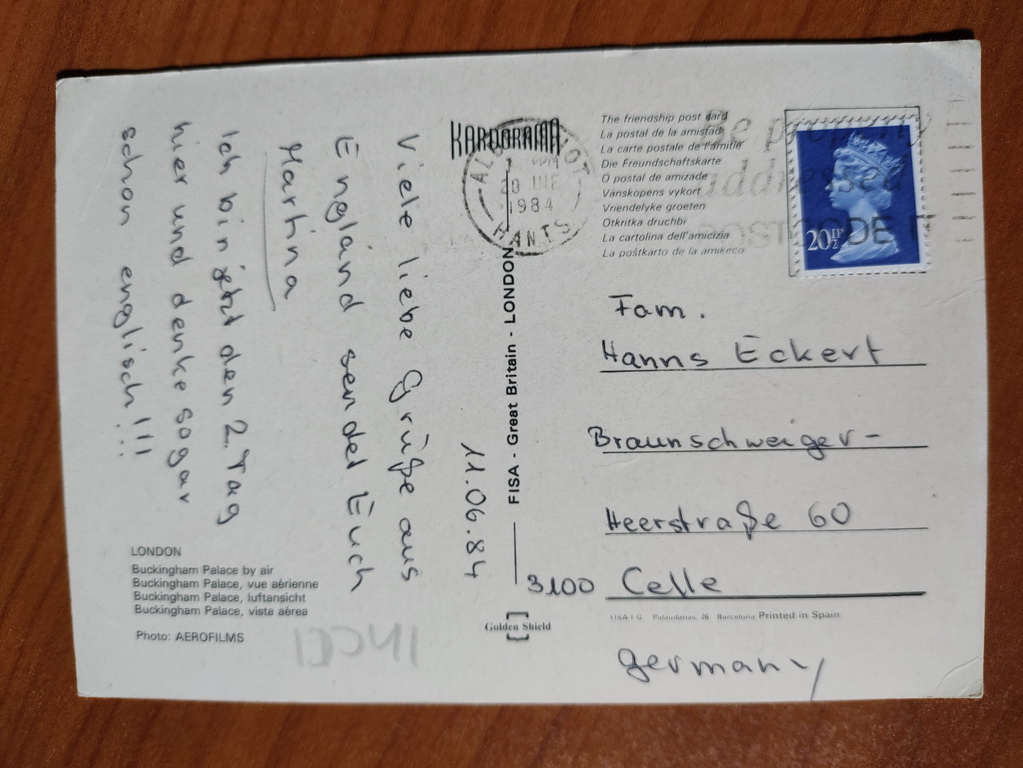 11.06.84
Viele liebe Grüße aus
England sendet Euch
Martina
Ich bin jetzt den 2. Tag
hier und denke sogar
schon englisch!!!
LONDON
Buckingham Palace by air
Buckingham Palace, vue aérienne
Buckingham Palace, luftansicht
Buckingham Palace, vista aérea
Photo: AEROFILMS
KARDORAMA
1984
HANTS
FISA - Great Britain - LONDON
Golden Shield
The friendship post card
La postal de la amistad
La carte postale de l'amitié
Die Freundschaftskarte
O postal de amizade
Vänskopens vykort
Vriendelyke groeten
Otkritka druchbi
La cartolina dell'amicizia
La poŝtkarto de la amikeco
Be properly
addressed
POSTCODE IT
20½P
Fam.
Hanns Eckert
Braunschweiger-
Heerstraße 60
3100 Celle
Printed in Spain
germany